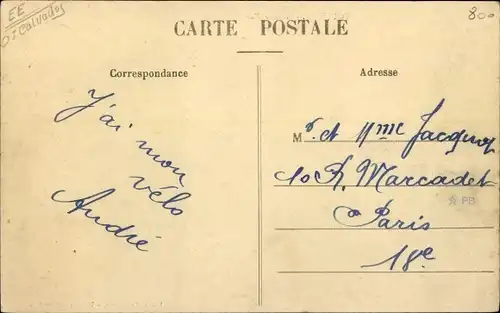 EE
Dt Calvados
800
CARTE POSTALE
Correspondance
Adresse
J'ai mon
vélo
André
Mr et Mme Jacquot
10 R. Marcadet
Paris
18e
PB